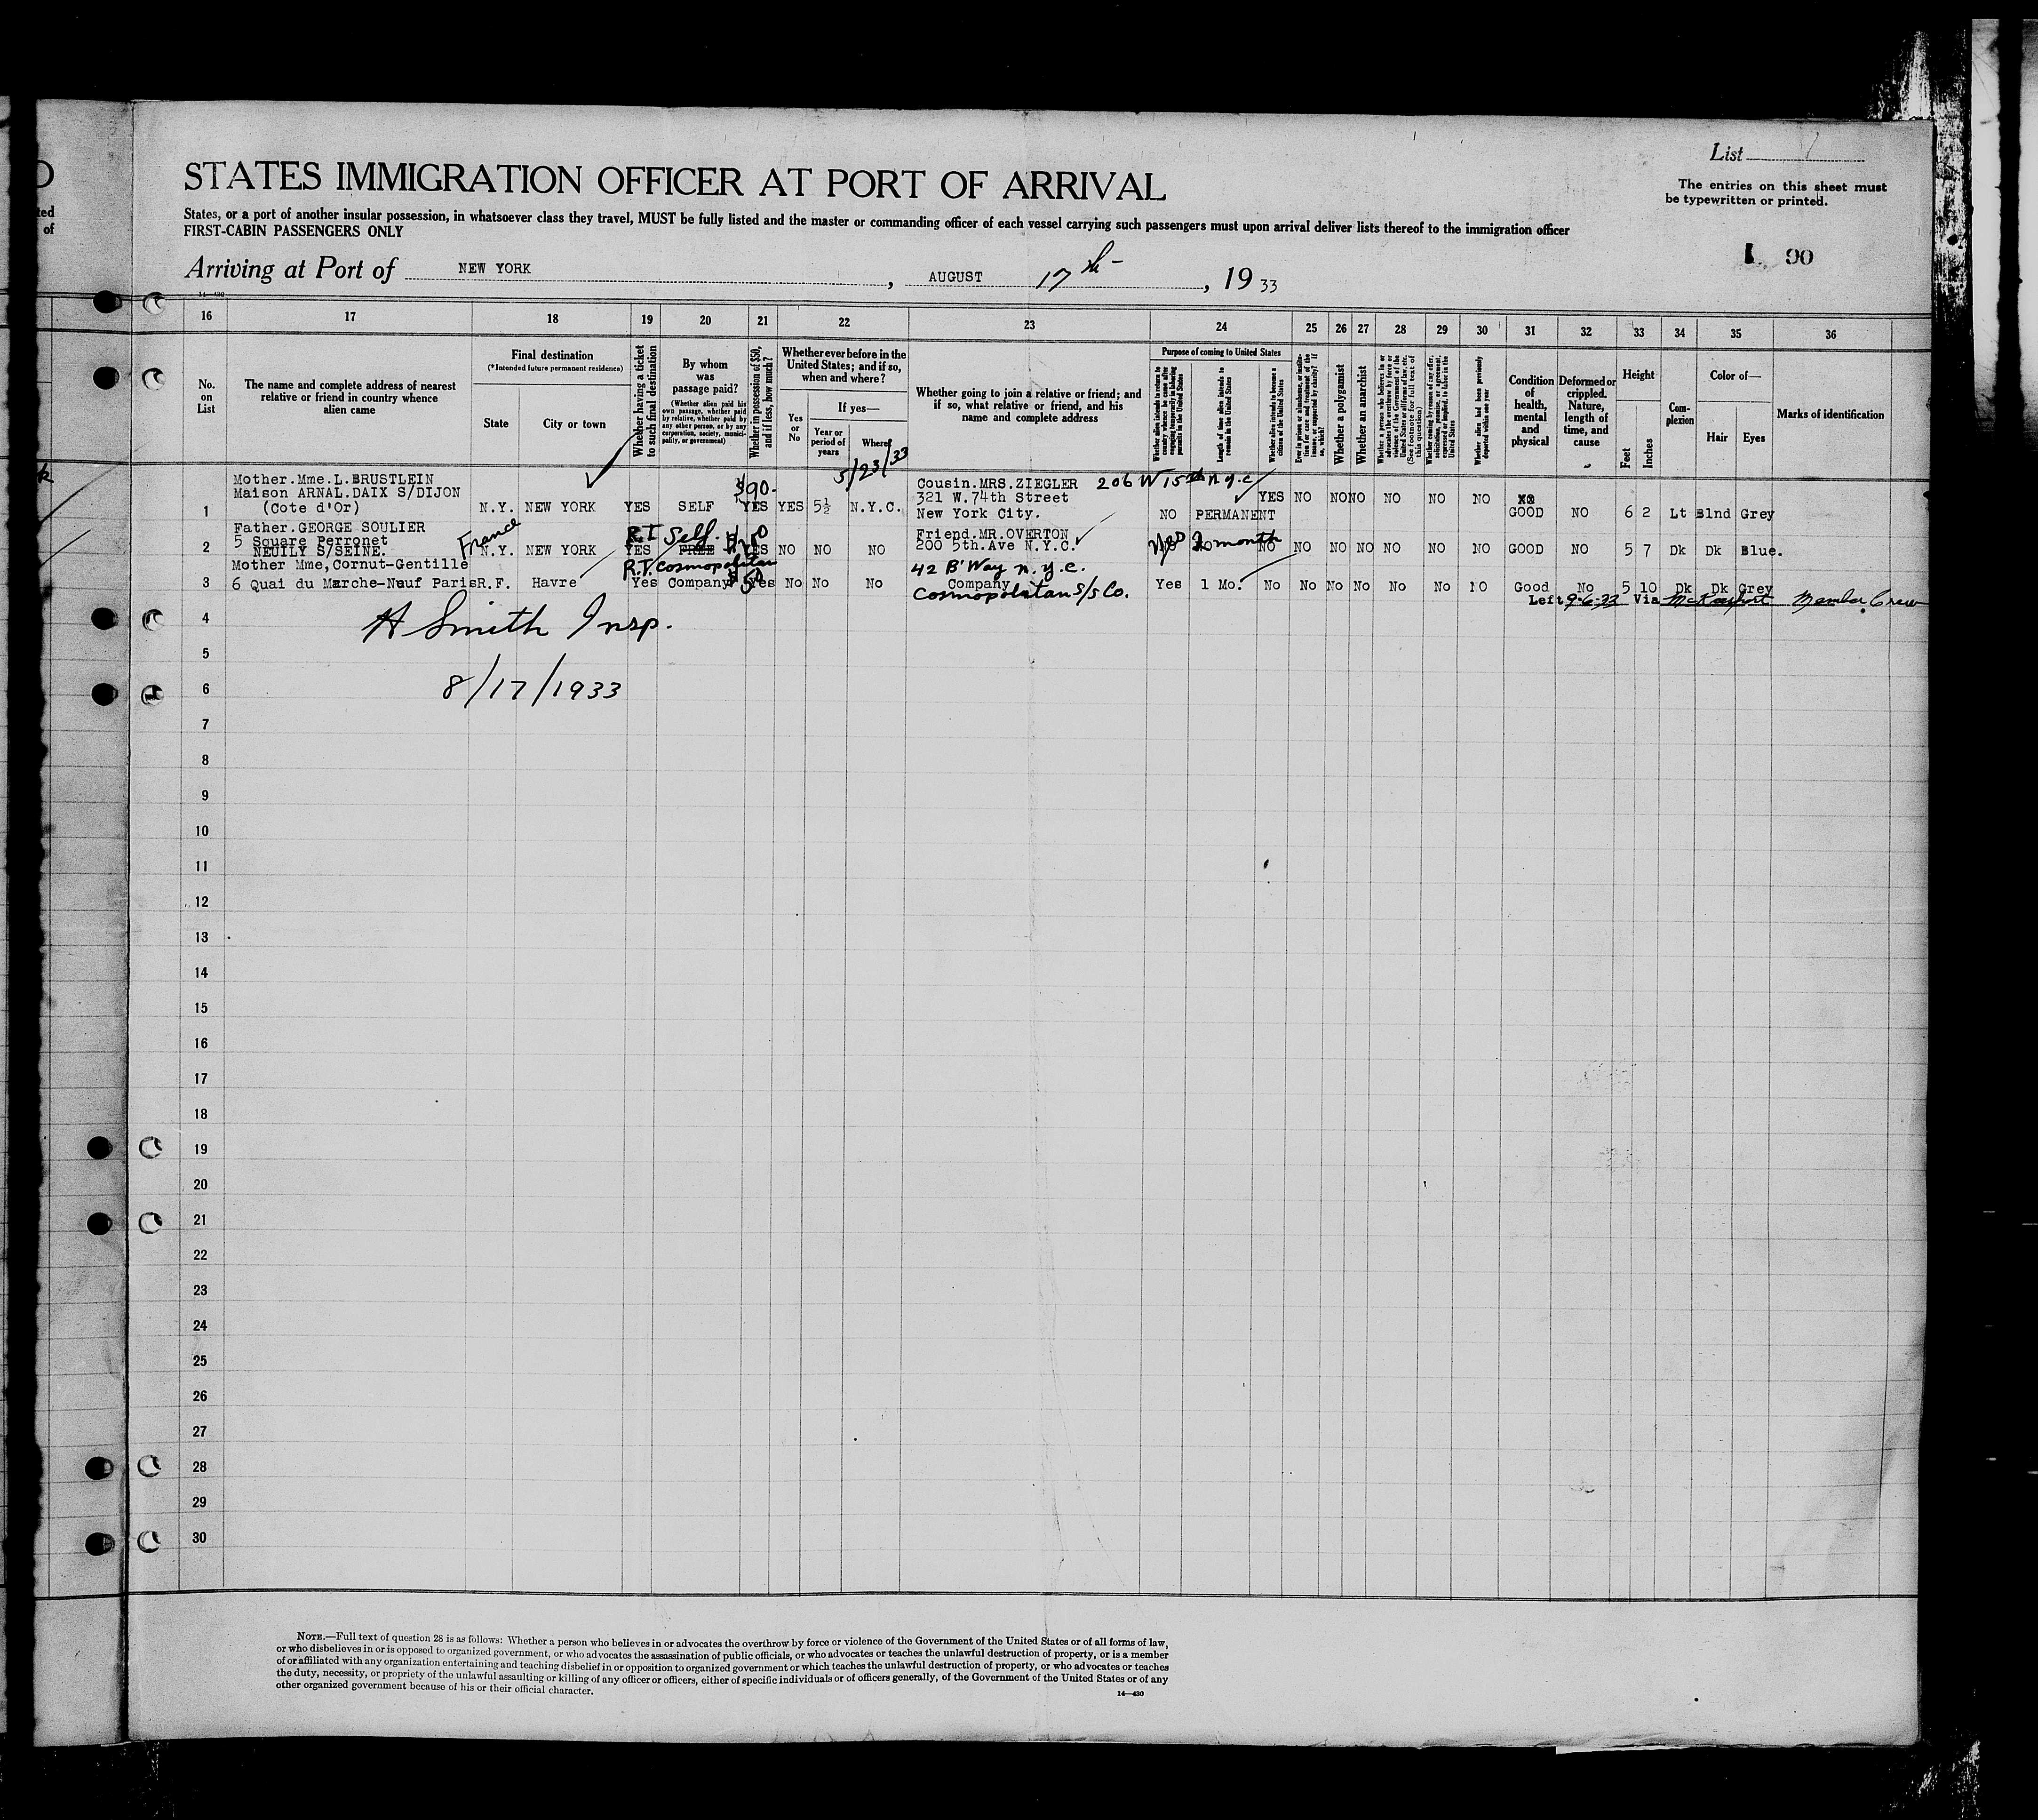 D
ted
of
k
List
The entries on this sheet must
be typewritten or printed.
STATES IMMIGRATION OFFICER AT PORT OF ARRIVAL
States, or a port of another insular possession, in whatsoever class they travel, MUST be fully listed and the master or commanding officer of each vessel carrying such passengers must upon arrival deliver lists thereof to the immigration officer
FIRST-CABIN PASSENGERS ONLY
90
Arriving at Port of NEW YORK, AUGUST 17th, 1933
14—430
16 17 18 19 20 21 22 23 24 25 26 27 28 29 30 31 32 33 34 35 36
No. on List
The name and complete address of nearest relative or friend in country whence alien came
Final destination
(*Intended future permanent residence)
State
City or town
Whether having a ticket to such final destination
By whom was passage paid?
(Whether alien paid his own passage, whether paid by relative, whether paid by any other person, or by any corporation, society, municipality, or government)
Whether in possession of $50, and if less, how much?
Whether ever before in the United States; and if so, when and where?
Yes or No
If yes—
Year or period of years
Where?
Whether going to join a relative or friend; and if so, what relative or friend, and his name and complete address
Purpose of coming to United States
Whether alien intends to return to country whence he came after engaging temporarily in laboring pursuits in the United States
Length of time alien intends to remain in the United States
Whether alien intends to become a citizen of the United States
Ever in prison or almshouse, or institution for care and treatment of the insane, or supported by charity? If so, which?
Whether a polygamist
Whether an anarchist
Whether a person who believes in or advocates the overthrow by force or violence of the Government of the United States or all forms of law, etc. (See footnote for full text of this question)
Whether coming by reason of any offer, solicitation, promise, or agreement, expressed or implied, to labor in the United States
Whether alien had been previously deported within one year
Condition of health, mental and physical
Deformed or crippled. Nature, length of time, and cause
Height
Feet
Inches
Complexion
Color of—
Hair
Eyes
Marks of identification
5/23/33
Mother.Mme.L.BRUSTLEIN
Maison ARNAL.DAIX S/DIJON
$90-
Cousin.MRS.ZIEGLER 206 W 15th N.Y.C.
321 W.74th Street
1 (Cote d'Or) N.Y. NEW YORK YES SELF YES YES 5½ N.Y.C. New York City. NO PERMANENT YES NO NO NO NO NO NO GOOD NO 6 2 Lt Blnd Grey
Father.GEORGE SOULIER
5 Square Perronet
France R.T. Self.
Friend.MR.OVERTON
2 NEUILY S/SEINE. N.Y. NEW YORK YES FREE YES NO NO NO 200 5th.Ave N.Y.C. Yes 2 month NO NO NO NO NO NO NO GOOD NO 5 7 Dk Dk Blue.
Mother Mme,Cornut-Gentille
R.T. Cosmopolitan
42 B'Way N.Y.C.
3 6 Quai du Marche-Neuf Paris R.F. Havre Yes Company $50 Yes No No No Company Yes 1 Mo. No No No No No No No Good No 5 10 Dk Dk Grey
Cosmopolitan S/S Co.
Left 9-6-33 Via McKeesport Member Crew
4
H Smith Insp.
5
6
8/17/1933
7
8
9
10
11
12
13
14
15
16
17
18
19
20
21
22
23
24
25
26
27
28
29
30
NOTE.—Full text of question 28 is as follows: Whether a person who believes in or advocates the overthrow by force or violence of the Government of the United States or of all forms of law,
or who disbelieves in or is opposed to organized government, or who advocates the assassination of public officials, or who advocates or teaches the unlawful destruction of property, or is a member
of or affiliated with any organization entertaining and teaching disbelief in or opposition to organized government or which teaches the unlawful destruction of property, or who advocates or teaches
the duty, necessity, or propriety of the unlawful assaulting or killing of any officer or officers, either of specific individuals or of officers generally, of the Government of the United States or of any
other organized government because of his or their official character.
14—430